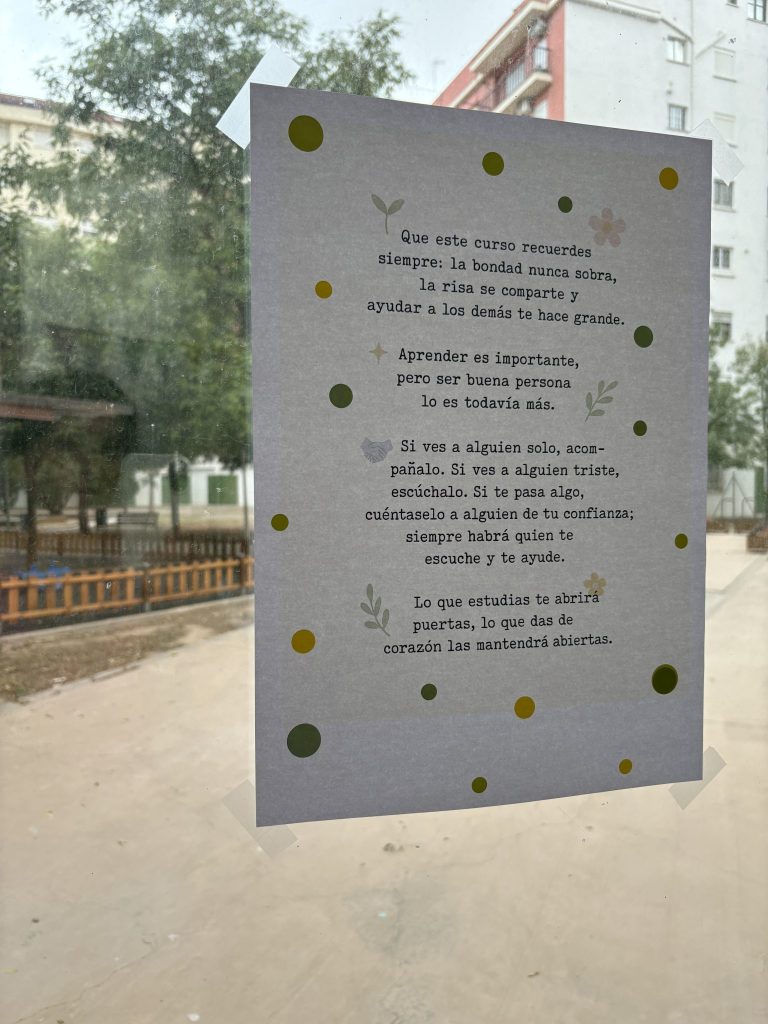 Que este curso recuerdes
siempre: la bondad nunca sobra,
la risa se comparte y
ayudar a los demás te hace grande.
Aprender es importante,
pero ser buena persona
lo es todavía más.
Si ves a alguien solo, acom-
pañalo. Si ves a alguien triste,
escúchalo. Si te pasa algo,
cuéntaselo a alguien de tu confianza;
siempre habrá quien te
escuche y te ayude.
Lo que estudias te abrirá
puertas, lo que das de
corazón las mantendrá abiertas.